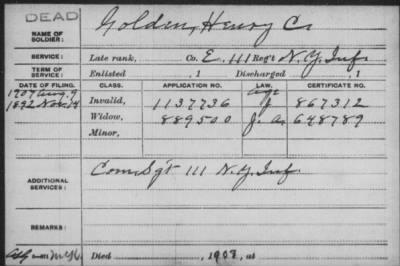 DEAD
NAME OF SOLDIER: Golden, Henry C.
SERVICE: Late rank, Co. E, 111 Reg't N.Y. Inf.
TERM OF SERVICE: Enlisted , 1 Discharged , 1
DATE OF FILING. CLASS. APPLICATION NO. LAW. CERTIFICATE NO.
1892 Nov. 14 Invalid, 1137736 J 867312
Widow, 889500 648789
Minor,
ADDITIONAL SERVICES: Com Sgt 111 N.Y. Inf.
REMARKS:
Died , 1908, at